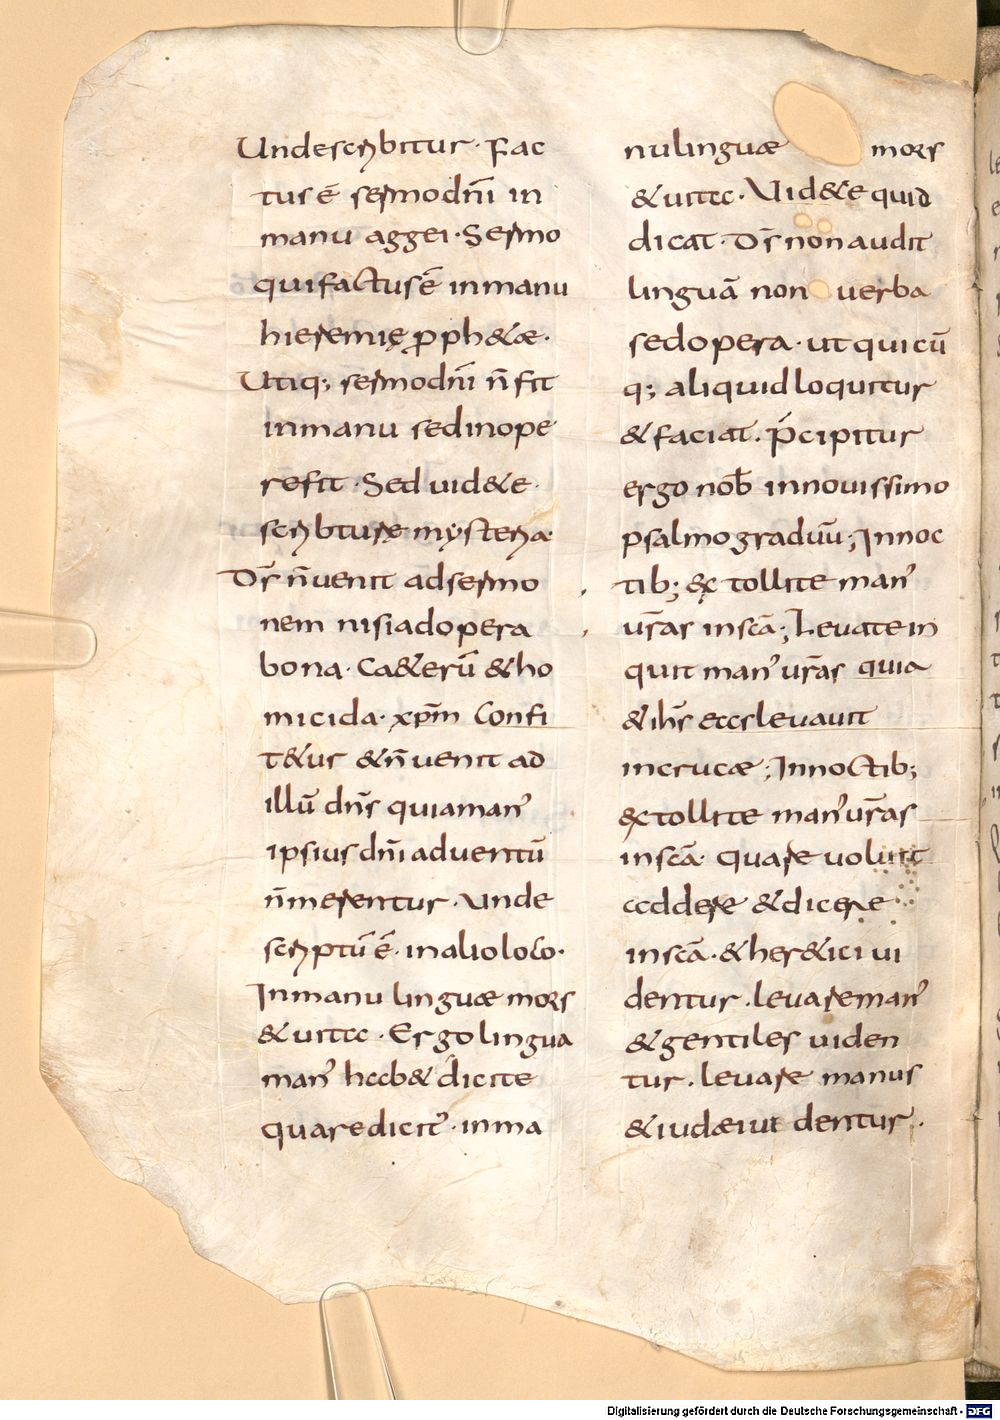 Undescribitur · Fac
tus ē sermo dn̄i in
manu aggei · Sermo
qui factus ē in manu
hieremię ꝓph&ae ·
Utiq; sermo dn̄i n̄ fit
in manu sed in ope
re fit · Sed uid&e
scribturę mysteria ·
Dr̄ n̄ uenit ad sermo
nem nisi ad opera
bona · Ca&erū & ho
micida · xp̄m confi
t&ur & n̄ uenit ad
illū dn̄s quia man'
ipsius dn̄i aduentū
n̄ merentur · Unde
scriptū ē · in alio loco ·
In manu linguae mors
& uita · Ergo lingua
man' hab& dicite
quare dicit' · in ma
nu linguae mors
& uita · Uid&e quid
dicat · Dr̄ non audit
linguā non uerba
sed opera · ut quicū
q; aliquid loquitur
& faciat · P̄cipitur
ergo nob̄ in nouissimo
psalmo graduū; In noc
tib; &tollite man'
ur̄as in scā; Leuate in
quit man' ur̄as quia
& ih̄s eas leuauit
in cruce; In noctib;
&tollite man' ur̄as
in scā · Quare uoluit
addere & dicere
in scā · & her&ici ui
dentur · leuare man'
& gentiles uiden
tur · leuare manus
& iudaei uidentur ·
Digitalisierung gefördert durch die Deutsche Forschungsgemeinschaft - DFG